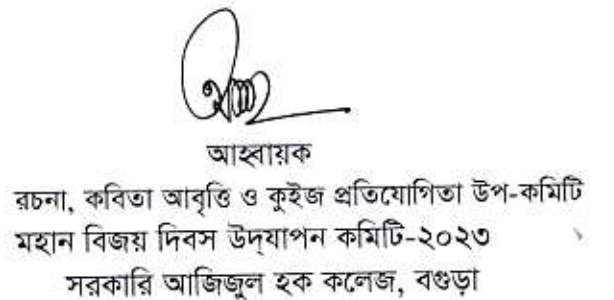 আহ্বায়ক
রচনা, কবিতা আবৃত্তি ও কুইজ প্রতিযোগিতা উপ-কমিটি
মহান বিজয় দিবস উদ্‌যাপন কমিটি-২০২৩
সরকারি আজিজুল হক কলেজ, বগুড়া